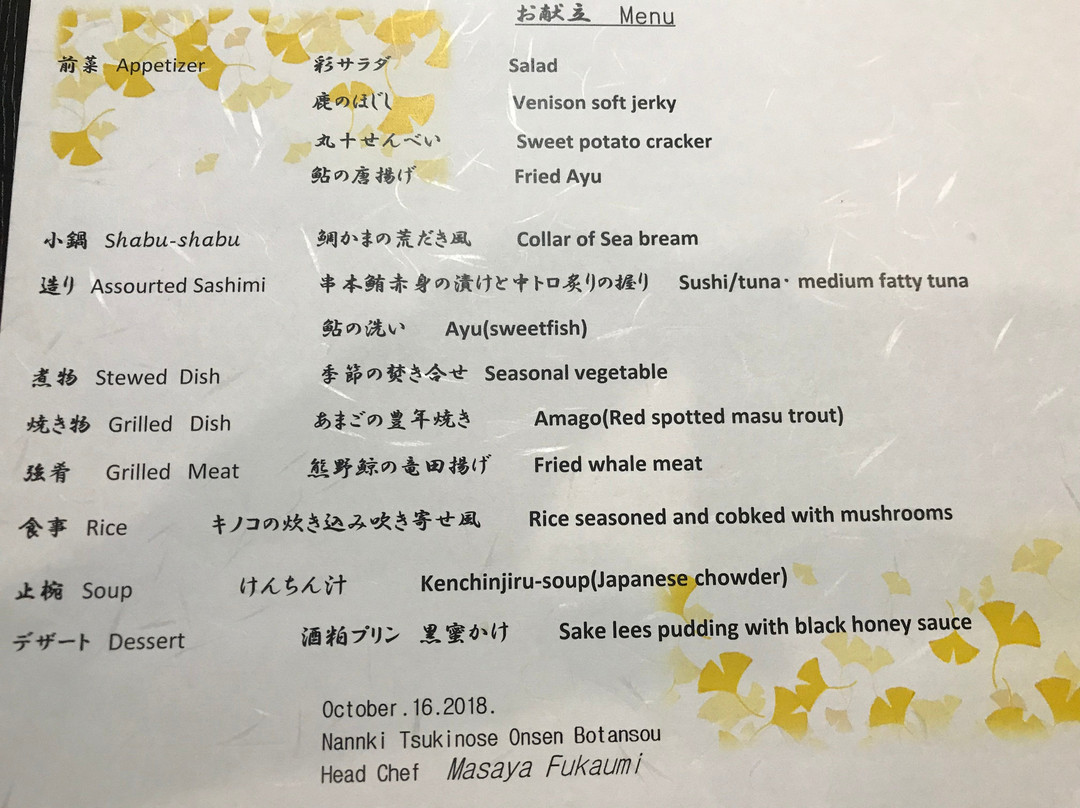 お献立 Menu
前菜 Appetizer 彩サラダ Salad
鹿のほじし Venison soft jerky
丸十せんべい Sweet potato cracker
鮎の唐揚げ Fried Ayu
小鍋 Shabu-shabu 鯛かまの荒だき風 Collar of Sea bream
造り Assourted Sashimi 串本鮪赤身の漬けと中トロ炙りの握り Sushi/tuna・ medium fatty tuna
鮎の洗い Ayu(sweetfish)
煮物 Stewed Dish 季節の焚き合せ Seasonal vegetable
焼き物 Grilled Dish あまごの豊年焼き Amago(Red spotted masu trout)
強肴 Grilled Meat 熊野鯨の竜田揚げ Fried whale meat
食事 Rice キノコの炊き込み吹き寄せ風 Rice seasoned and cobked with mushrooms
止椀 Soup けんちん汁 Kenchinjiru-soup(Japanese chowder)
デザート Dessert 酒粕プリン 黒蜜かけ Sake lees pudding with black honey sauce
October.16.2018.
Nannki Tsukinose Onsen Botansou
Head Chef Masaya Fukaumi